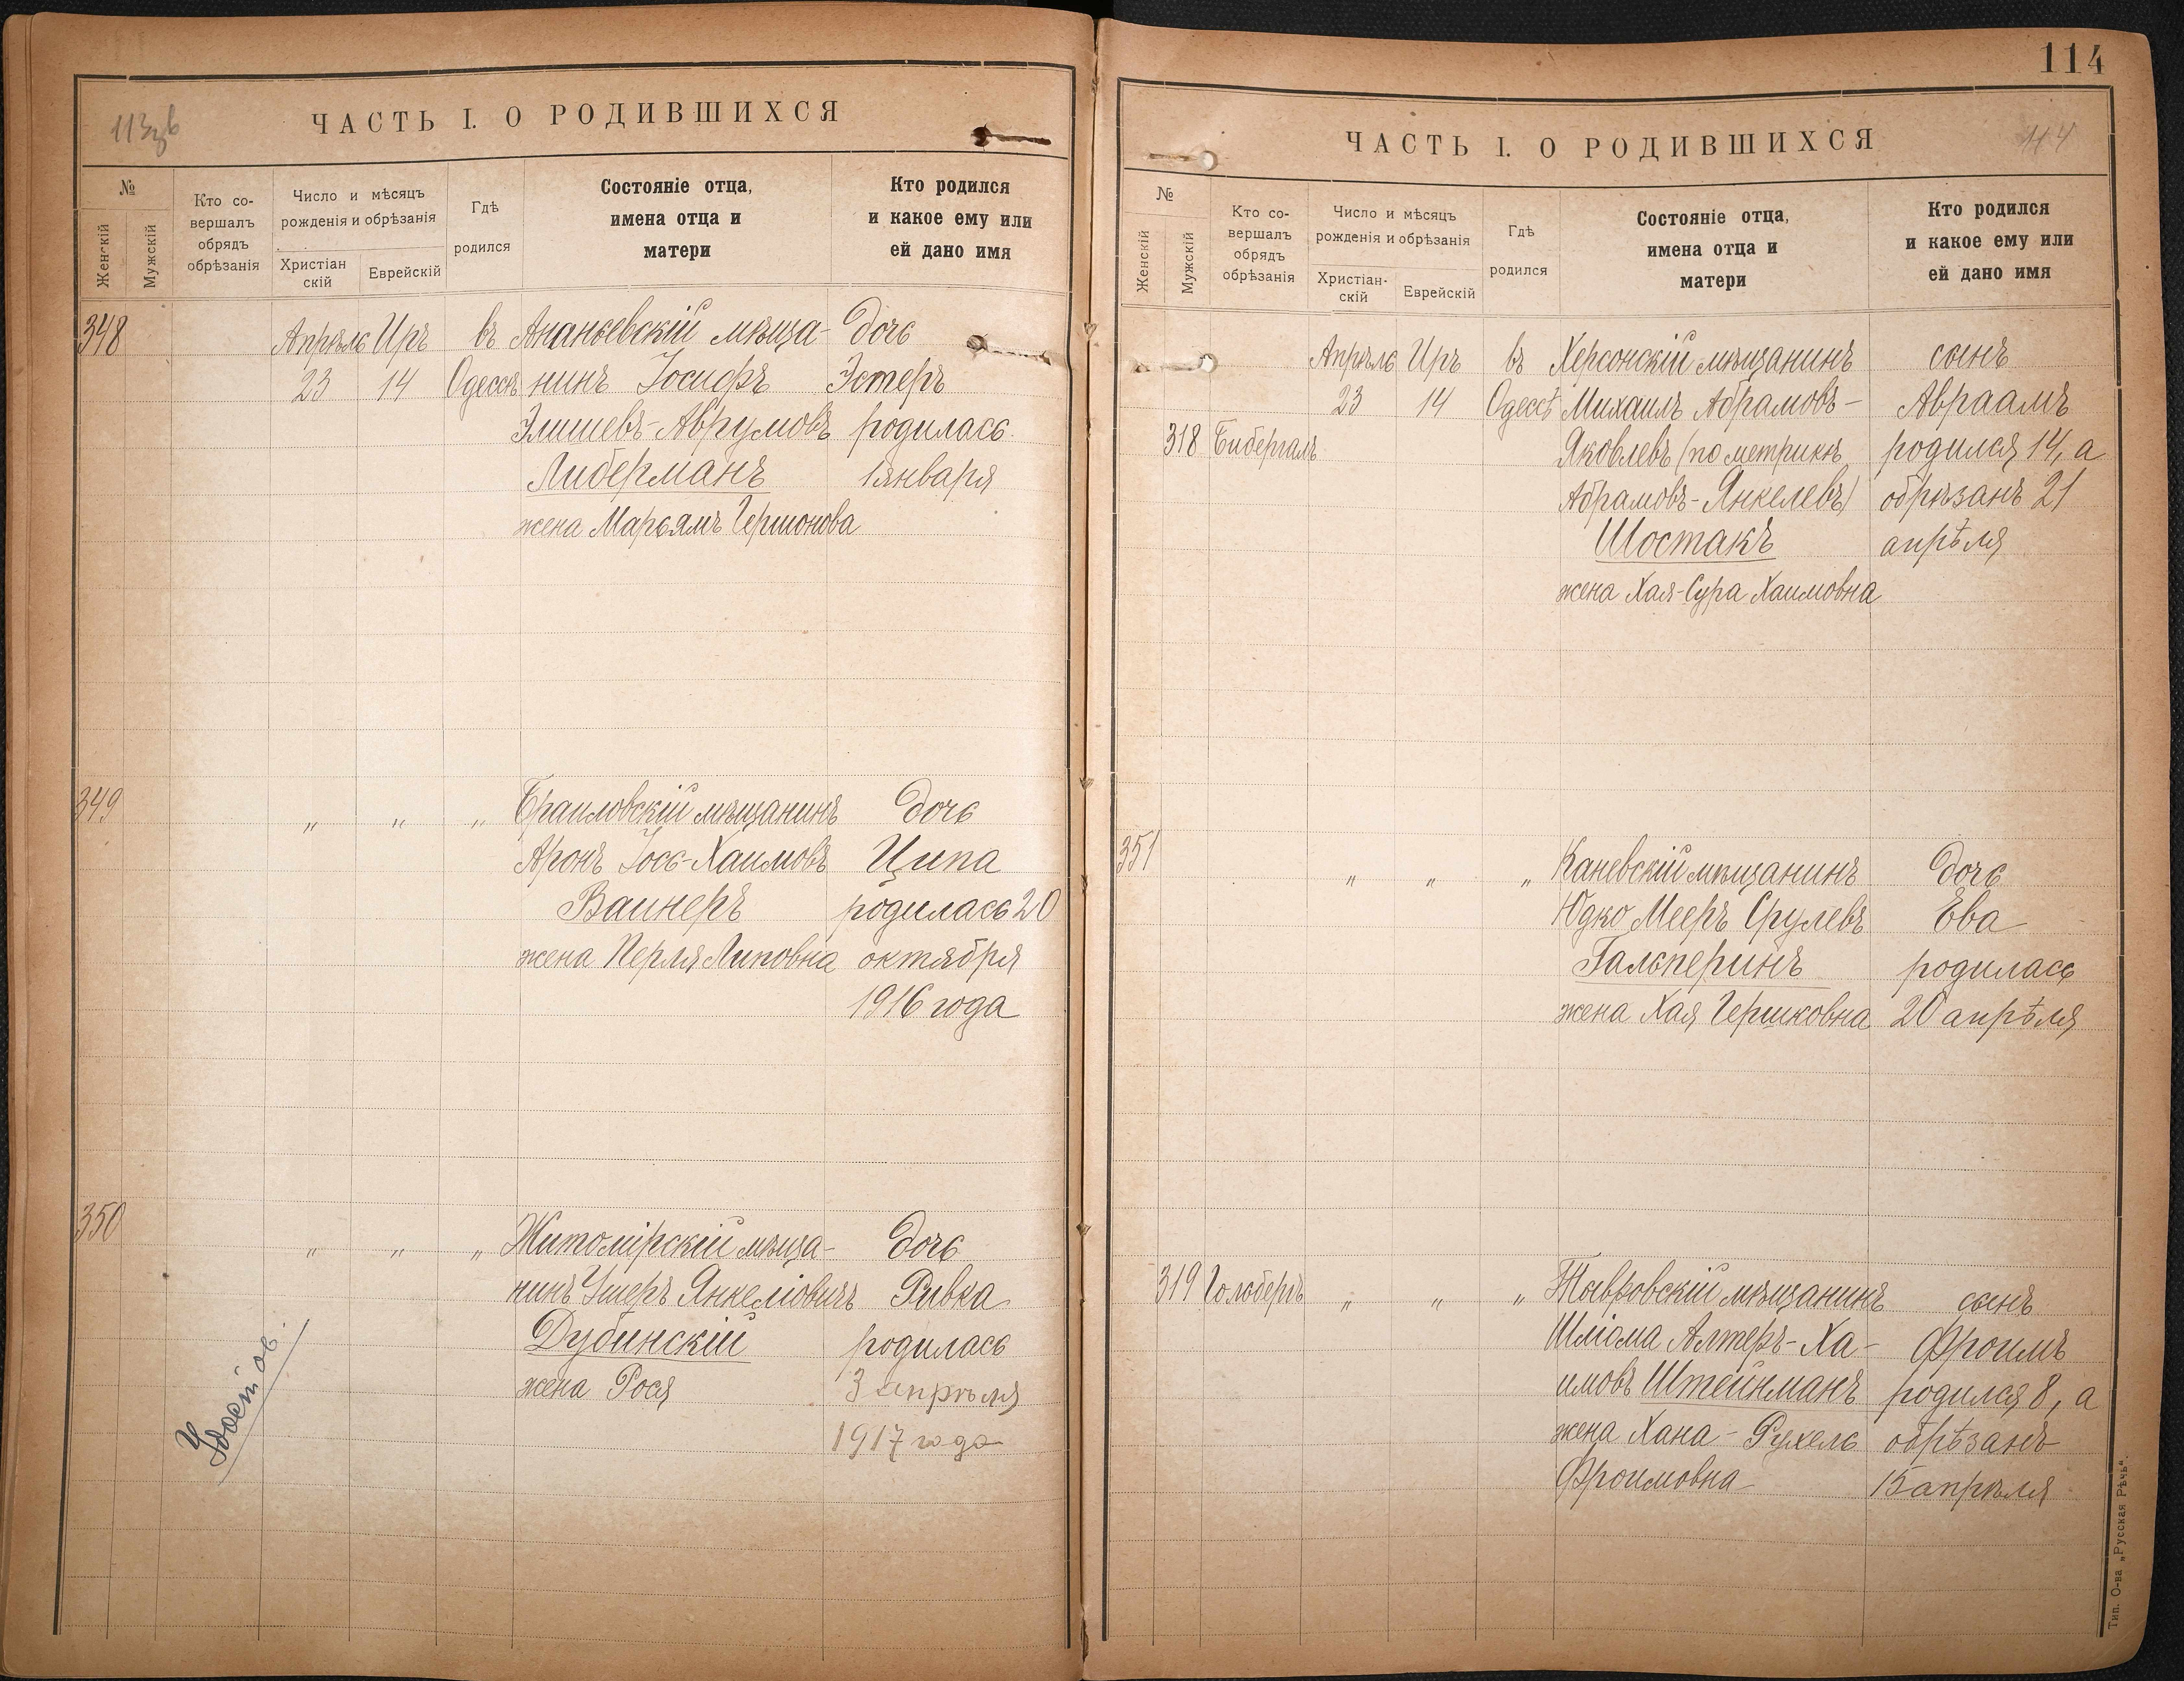 113зв
ЧАСТЬ I. О РОДИВШИХСЯ
№
Женскій
Мужскій
Кто со-
вершалъ
обрядъ
обрѣзанія
Число и мѣсяцъ
рожденія и обрѣзанія
Христіан
скій
Еврейскій
Гдѣ
родился
Состояніе отца,
имена отца и
матери
Кто родился
и какое ему или
ей дано имя
348 Апрѣль Иръ въ Ананьевскій мѣща- дочь
23 14 Одессѣ нинъ Іосифъ Эстеръ
Элишевъ-Аврумовъ родилась
Либерманъ 1 января
жена Марьямъ Гершонова
349 " " " Браиловскій мѣщанинъ дочь
Аронъ Іось-Хаимовъ Ципа
Вайнеръ родилась 20
жена Перля Липовна октября
1916 года
350 " " " Житомірскій мѣща- дочь
нинъ Ушеръ Янкеліовичъ Ривка
Дубинскій родилась
жена Рося 3 апрѣля
1917 года
114
ЧАСТЬ I. О РОДИВШИХСЯ
114
№
Женскій
Мужскій
Кто со-
вершалъ
обрядъ
обрѣзанія
Число и мѣсяцъ
рожденія и обрѣзанія
Христіан-
скій
Еврейскій
Гдѣ
родился
Состояніе отца,
имена отца и
матери
Кто родился
и какое ему или
ей дано имя
Апрѣль Иръ въ Херсонскій мѣщанинъ сынъ
23 14 Одессѣ Михаилъ Абрамовъ- Авраамъ
318 Бибергалъ Яковлевъ (по метрикѣ родился 14, а
Абрамовъ-Янкелевъ) обрѣзанъ 21
Шостакъ апрѣля
жена Хая-Сура Хаимовна
351 " " " Каневскій мѣщанинъ дочь
Юдко Мееръ Срулевъ Ева
Гальперинъ родилась
жена Хая Гершковна 20 апрѣля
319 Гольбергъ " " " Тывровскій мѣщанинъ сынъ
Шліома Алтеръ-Ха- Фроимъ
имовъ Штейнманъ родился 8, а
жена Хана-Рухель обрѣзанъ
Фроимовна 15 апрѣля
Тип. О-ва „Русская Рѣчь".